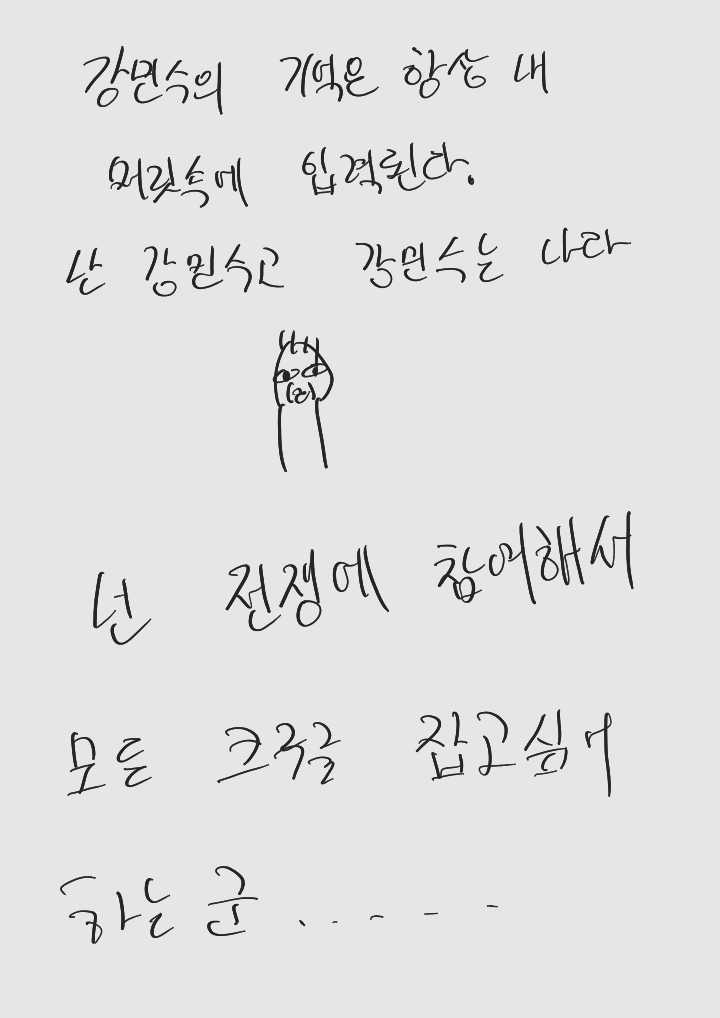 강민수의 기억은 항상 내
머릿속에 입력된다.
난 강민수고 강민수는 나다
넌 전쟁에 참여해서
모든 크국글 잡고싶어
하는 군 . . . . .